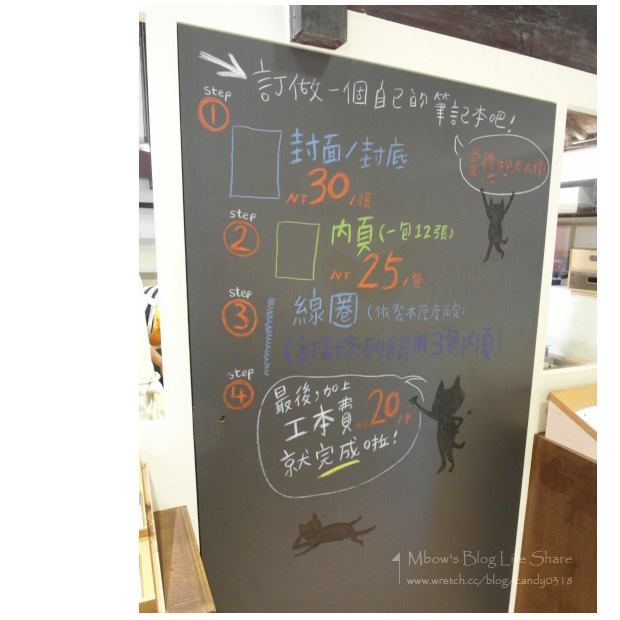 訂做一個自己的筆記本吧!
step
1
封面/封底
NT30/張
step
2
內頁(一包12張)
NT 25/包
step
3
線圈(依裝本厚度而定)
step
4
最後,加上
工本費NT20/本
就完成啦!
Mbow's Blog Life Share
www.wretch.cc/blog/candy0318